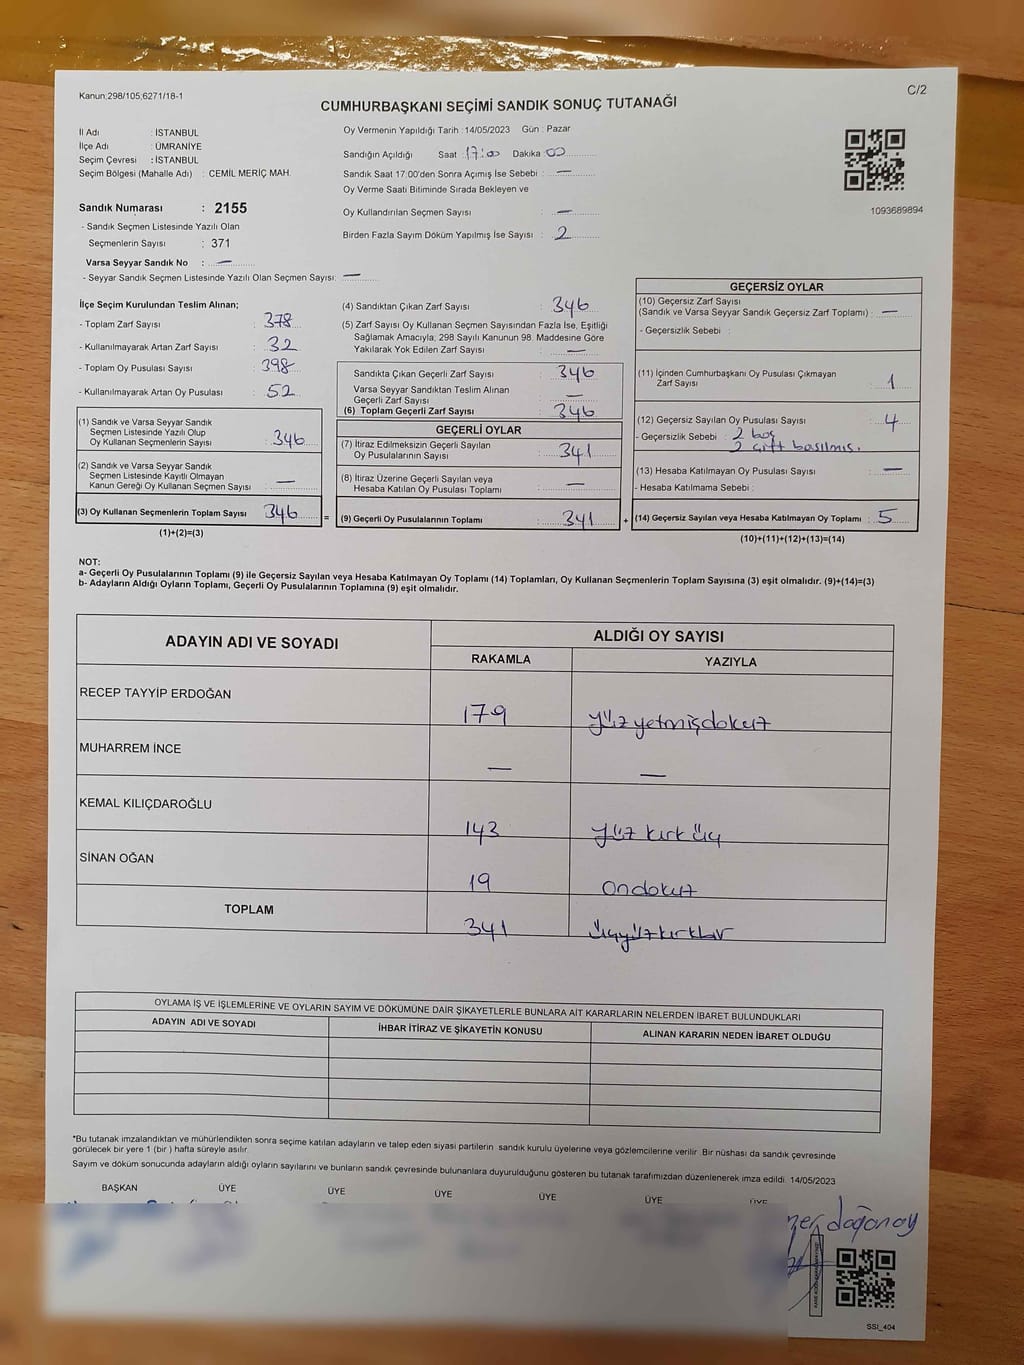 Kanun:298/105;6271/18-1
C/2
CUMHURBAŞKANI SEÇİMİ SANDIK SONUÇ TUTANAĞI
İl Adı : İSTANBUL
İlçe Adı : ÜMRANİYE
Seçim Çevresi : İSTANBUL
Seçim Bölgesi (Mahalle Adı) : CEMİL MERİÇ MAH.
Sandık Numarası : 2155
- Sandık Seçmen Listesinde Yazılı Olan
Seçmenlerin Sayısı : 371
Varsa Seyyar Sandık No : —
- Seyyar Sandık Seçmen Listesinde Yazılı Olan Seçmen Sayısı: —
Oy Vermenin Yapıldığı Tarih :14/05/2023 Gün : Pazar
Sandığın Açıldığı Saat :17:00 Dakika :00
Sandık Saat 17:00'den Sonra Açımış İse Sebebi : —
Oy Verme Saati Bitiminde Sırada Bekleyen ve
Oy Kullandırılan Seçmen Sayısı : —
Birden Fazla Sayım Döküm Yapılmış İse Sayısı : 2
1093689894
İlçe Seçim Kurulundan Teslim Alınan;
- Toplam Zarf Sayısı : 378
- Kullanılmayarak Artan Zarf Sayısı : 32
- Toplam Oy Pusulası Sayısı : 398
- Kullanılmayarak Artan Oy Pusulası : 52
(1) Sandık ve Varsa Seyyar Sandık
Seçmen Listesinde Yazılı Olup
Oy Kullanan Seçmenlerin Sayısı : 346
(2) Sandık ve Varsa Seyyar Sandık
Seçmen Listesinde Kayıtlı Olmayan
Kanun Gereği Oy Kullanan Seçmen Sayısı : —
(3) Oy Kullanan Seçmenlerin Toplam Sayısı : 346
(1)+(2)=(3)
(4) Sandıktan Çıkan Zarf Sayısı : 346
(5) Zarf Sayısı Oy Kullanan Seçmen Sayısından Fazla İse, Eşitliği
Sağlamak Amacıyla; 298 Sayılı Kanunun 98. Maddesine Göre
Yakılarak Yok Edilen Zarf Sayısı : —
Sandıkta Çıkan Geçerli Zarf Sayısı : 346
Varsa Seyyar Sandıktan Teslim Alınan
Geçerli Zarf Sayısı : —
(6) Toplam Geçerli Zarf Sayısı : 346
GEÇERLİ OYLAR
(7) İtiraz Edilmeksizin Geçerli Sayılan
Oy Pusulalarının Sayısı : 341
(8) İtiraz Üzerine Geçerli Sayılan veya
Hesaba Katılan Oy Pusulası Toplamı : —
= (9) Geçerli Oy Pusulalarının Toplamı : 341 +
GEÇERSİZ OYLAR
(10) Geçersiz Zarf Sayısı
(Sandık ve Varsa Seyyar Sandık Geçersiz Zarf Toplamı) : —
- Geçersizlik Sebebi :
(11) İçinden Cumhurbaşkanı Oy Pusulası Çıkmayan
Zarf Sayısı : 1
(12) Geçersiz Sayılan Oy Pusulası Sayısı : 4
- Geçersizlik Sebebi : 2 boş
2 çift basılmış.
(13) Hesaba Katılmayan Oy Pusulası Sayısı : —
- Hesaba Katılmama Sebebi :
(14) Geçersiz Sayılan veya Hesaba Katılmayan Oy Toplamı : 5
(10)+(11)+(12)+(13)=(14)
NOT:
a- Geçerli Oy Pusulalarının Toplamı (9) ile Geçersiz Sayılan veya Hesaba Katılmayan Oy Toplamı (14) Toplamları, Oy Kullanan Seçmenlerin Toplam Sayısına (3) eşit olmalıdır. (9)+(14)=(3)
b- Adayların Aldığı Oyların Toplamı, Geçerli Oy Pusulalarının Toplamına (9) eşit olmalıdır.
ADAYIN ADI VE SOYADI
ALDIĞI OY SAYISI
RAKAMLA YAZIYLA
RECEP TAYYİP ERDOĞAN 179 Yüz yetmişdokuz
MUHARREM İNCE — —
KEMAL KILIÇDAROĞLU 143 Yüz kırk üç
SİNAN OĞAN 19 ondokuz
TOPLAM 341 üçyüzkırkbir
OYLAMA İŞ VE İŞLEMLERİNE VE OYLARIN SAYIM VE DÖKÜMÜNE DAİR ŞİKAYETLERLE BUNLARA AİT KARARLARIN NELERDEN İBARET BULUNDUKLARI
ADAYIN ADI VE SOYADI İHBAR İTİRAZ VE ŞİKAYETİN KONUSU ALINAN KARARIN NEDEN İBARET OLDUĞU
*Bu tutanak imzalandıktan ve mühürlendikten sonra seçime katılan adayların ve talep eden siyasi partilerin sandık kurulu üyelerine veya gözlemcilerine verilir. Bir nüshası da sandık çevresinde
görülecek bir yere 1 (bir ) hafta süreyle asılır.
Sayım ve döküm sonucunda adayların aldığı oyların sayılarını ve bunların sandık çevresinde bulunanlara duyurulduğunu gösteren bu tutanak tarafımızdan düzenlenerek imza edildi. 14/05/2023
BAŞKAN ÜYE ÜYE ÜYE ÜYE ÜYE ÜYE
doğanay
SSI_404